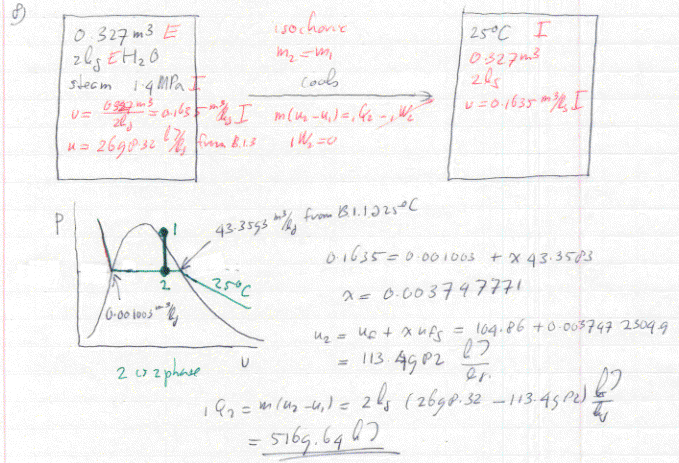 8)
0.327 m³ E
2kg E H₂O
steam 1.4 MPa I
v = 0.327 m³ / 2kg = 0.1635 m³/kg I
u = 2698.32 kJ/kg from B.1.3
isochoric
m₂ = m₁
cools
m(u₂ - u₁) = ₁Q₂ - ₁W₂
₁W₂ = 0
25°C I
0.327 m³
2kg
v = 0.1635 m³/kg I
P
1
43.3593 m³/kg from B.1.1 @ 25°C
2
25°C
0.001003 m³/kg
v
2 is 2 phase
0.1635 = 0.001003 + x 43.3583
x = 0.003747771
u₂ = uf + x ufg = 104.86 + 0.003747 2304.9
= 113.4982 kJ/kg
₁Q₂ = m(u₂ - u₁) = 2kg (2698.32 - 113.4982) kJ/kg
= 5169.64 kJ